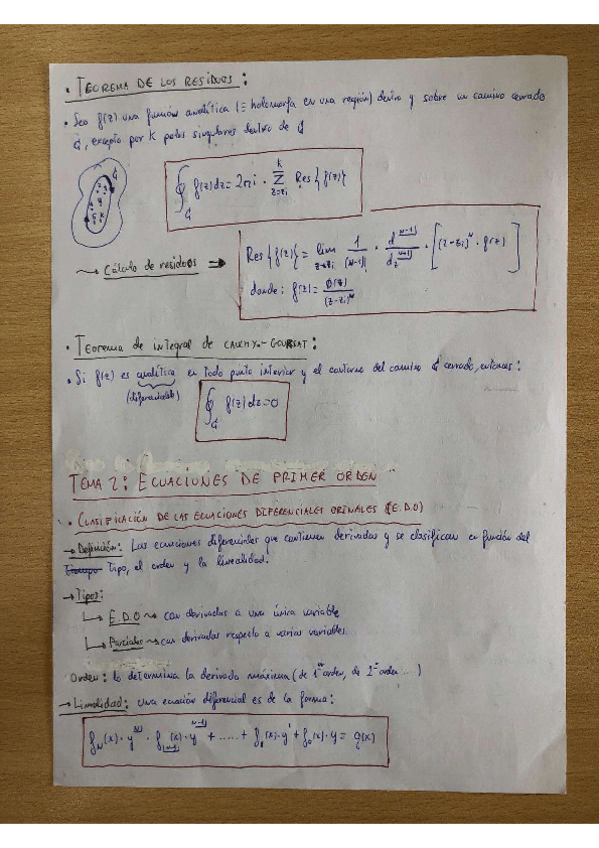 • TEOREMA DE LOS RESIDUOS:
• Sea f(z) una función analítica (≡ holomorfa en una región) dentro y sobre un camino cerrado
C, excepto por K polos singulares dentro de C
∮_C f(z)dz = 2πi · Σ_{z=zi}^{k} Res{f(z)}
⤳ Cálculo de residuos ⇒
Res{f(z)} = lim_{z→zi} 1/(N-1)! · d^{N-1}/dz^{N-1} · [(z-zi)^N · f(z)]
donde: f(z) = Φ(z)/(z-zi)^N
• Teorema de integral de CAUCHY-GOURSAT:
• Si f(z) es analítica en todo punto interior y el contorno del camino C cerrado, entonces:
(diferenciable)
∮_C f(z)dz=0
TEMA 2: ECUACIONES DE PRIMER ORDEN
• CLASIFICACIÓN DE LAS ECUACIONES DIFERENCIALES ORINALES (E.D.O)
→ Definición: Las ecuaciones diferenciales que contienen derivadas y se clasifican en función del
Tipo, el orden y la linealidad.
→ Tipos:
↳ E.D.O ⤳ con derivadas a una única variable
↳ Parciales ⤳ con derivadas respecto a varias variables.
Orden: lo determina la derivada máxima (de 1er orden, de 2º orden ...)
→ Linealidad: Una ecuación diferencial es de la forma:
f_N(x) · y^{(N)} · f_{(N-1)}(x) · y^{N-1} + ...... + f_1(x) · y' + f_0(x) · y = g(x)